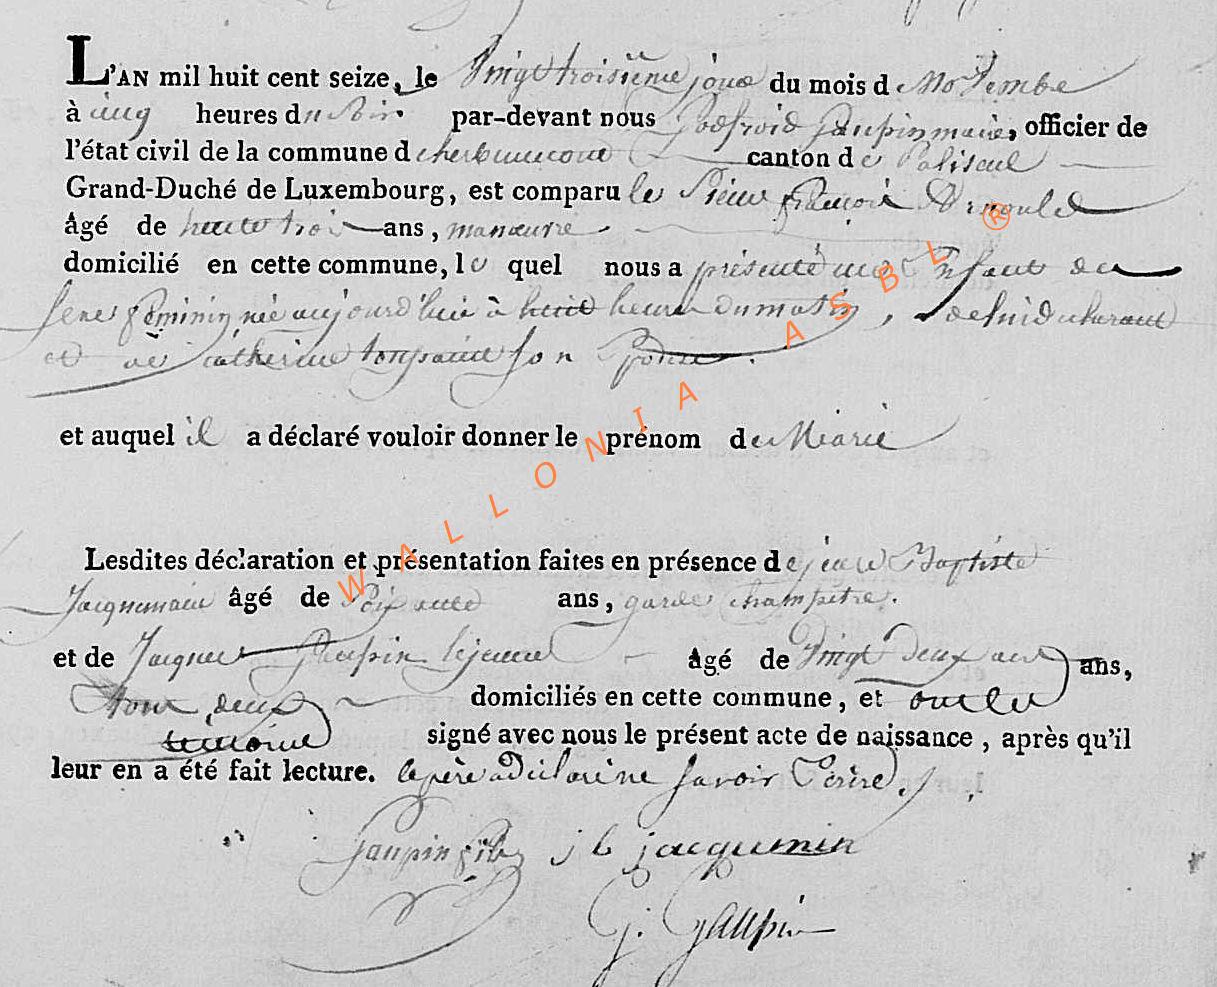 L'AN mil huit cent seize, le Vingt troisième jour du mois de Novembe
à cinq heures du Soir par-devant nous Godfroid Gaupin maire, officier de
l'état civil de la commune d'herbeumont canton de Paliseul
Grand-Duché de Luxembourg, est comparu le Sieur françois Arnould
âgé de trente trois ans, manœuvre
domicilié en cette commune, le quel nous a présenté une Enfant du
sexe féminin, née aujourd'hui à huit heures du matin, de lui déclarant
et de catherine toussaint son Epouse.
et auquel il a déclaré vouloir donner le prénom de Marie
Lesdites déclaration et présentation faites en présence de jean Baptiste
Jacquemin âgé de Soixante ans, garde champetre.
et de Jacques Gaupin lejeune âgé de Vingt deux ans ans,
tous deux domiciliés en cette commune, et ont les
temoins signé avec nous le présent acte de naissance, après qu'il
leur en a été fait lecture. le père a déclaré ne savoir Ecrire.
Gaupin fils j b jacquemin
G. Gaupin
WALLONIA ASBL ®